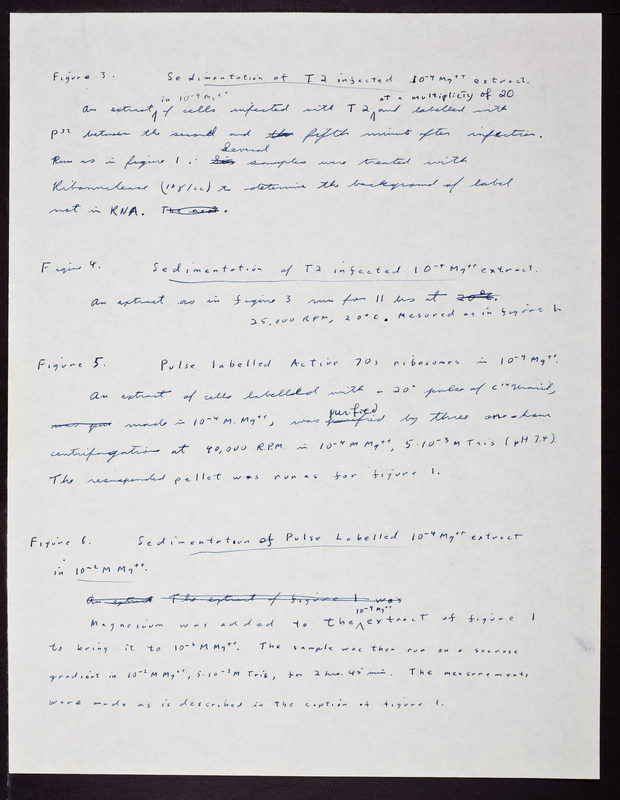 Figure 3. Sedimentation of T2 infected 10⁻⁴ Mg⁺⁺ extract.
in 10⁻⁴ Mg⁺⁺ at a multiplicity of 20
An extract of cells infected with T2 and labelled with
P³² between the second and the fifth minute after infection.
Several
Run as in figure 1. Six samples were treated with
Ribonuclease (10γ/cc) to determine the background of label
not in RNA. The next.
Figure 4. Sedimentation of T2 infected 10⁻⁴ Mg⁺⁺ extract.
An extract as in figure 3 run for 11 hrs at 20°C.
25,000 RPM, 20°C. Mesured as in figure 1.
Figure 5. Pulse labelled Active 70s ribosomes in 10⁻⁴ Mg⁺⁺.
An extract of cells labelled with a 20" pulse of C¹⁴ Uracil,
purified
was pur made in 10⁻⁴ M. Mg⁺⁺, was purified by three one-hour
centrifugations at 40,000 R.P.M in 10⁻⁴ M Mg⁺⁺, 5·10⁻³ M Tris (pH 7.4)
The resuspended pellet was run as for figure 1.
Figure 6. Sedimentation of Pulse Labelled 10⁻⁴ Mg⁺⁺ extract
in 10⁻² M Mg⁺⁺.
An extract The extract of figure 1 was
10⁻⁴ Mg⁺⁺
Magnesium was added to the extract of figure 1
to bring it to 10⁻² M Mg⁺⁺. The sample was then run on a sucrose
gradient in 10⁻² M Mg⁺⁺, 5·10⁻³ M Tris, for 2 hrs. 45 min. The measurements
were made as is described in the caption of figure 1.